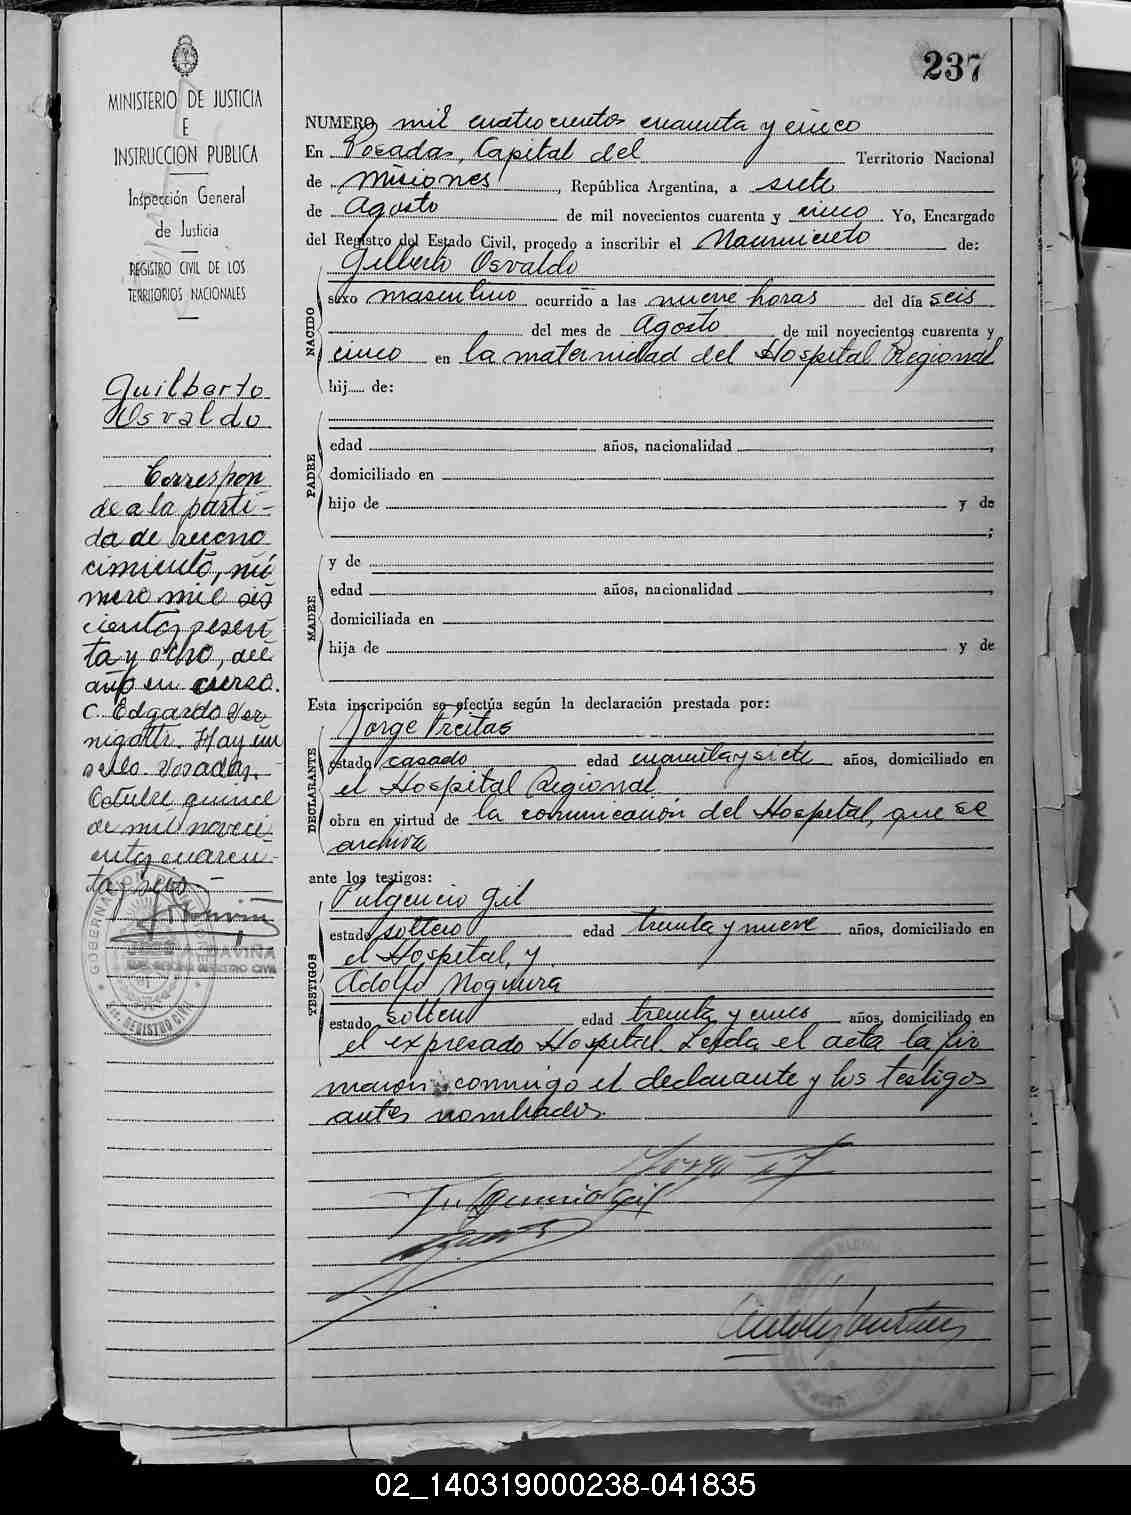 237
MINISTERIO DE JUSTICIA
E
INSTRUCCION PUBLICA
Inspección General
de Justicia
REGISTRO CIVIL DE LOS
TERRITORIOS NACIONALES
Guilberto
Osvaldo
Correspon
de a la parti-
da de recono
cimiento, nú
mero mil seis
cientos sesen
ta y ocho, del
año en curso.
C. Edgardo Ver
nigotti. Hay un
sello Posadas,
Octubre quince
de mil noveci
entos cuaren-
ta y seis
NUMERO mil cuatrocientos cuarenta y cinco
En Posadas, Capital del Territorio Nacional
de Misiones, República Argentina, a siete
de Agosto de mil novecientos cuarenta y cinco Yo, Encargado
del Registro del Estado Civil, procedo a inscribir el Nacimiento de:
Gilberto Osvaldo
NACIDO
sexo masculino ocurrido a las nueve horas del día seis
del mes de Agosto de mil novecientos cuarenta y
cinco en la maternidad del Hospital Regional
hij de:
PADRE
edad años, nacionalidad
domiciliado en
hijo de y de
MADRE
y de
edad años, nacionalidad
domiciliada en
hija de y de
Esta inscripción se efectúa según la declaración prestada por:
DECLARANTE
Jorge Freitas
estado casado edad cuarenta y siete años, domiciliado en
el Hospital Regional
obra en virtud de la comunicación del Hospital, que se
archiva
ante los testigos:
TESTIGOS
Fulgencio Gil
estado soltero edad treinta y nueve años, domiciliado en
el Hospital, y
Adolfo Noguera
estado soltero edad treinta y cinco años, domiciliado en
el expresado Hospital. Leida el acta la fir
maron conmigo el declarante y los testigos
antes nombrados.
Fulgencio Gil
02_140319000238-041835